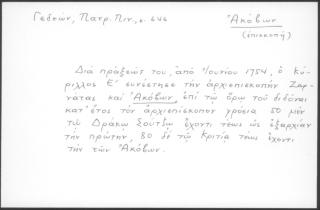 Γεδεών, Πατρ. Πιν., σ. 646
Ἀκόβων
(ἐπισκοπή)
Διὰ πράξεώς του, ἀπὸ Ἰουνίου 1754, ὁ Κύ-
ριλλος Ε′ συνέστησε τὴν ἀρχιεπισκοπὴν Ζαρ-
νάτας καὶ Ἀκόβων ἐπὶ τῷ ὅρῳ τοῦ διδόναι
κατ' ἔτος τὸν ἀρχιεπίσκοπον γρόσια 50 μὲν
τῷ Δράκῳ Σούτσῳ ἔχοντι τέως ὡς ἐξαρχίαν
τὴν πρώτην, 80 δὲ τῷ Κριτίᾳ τέως ἔχοντι
τὴν τῶν Ἀκόβων.